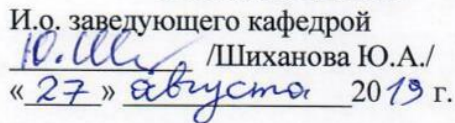 И.о. заведующего кафедрой
Ю.Ши /Шиханова Ю.А./
« 27 » августа 2019 г.